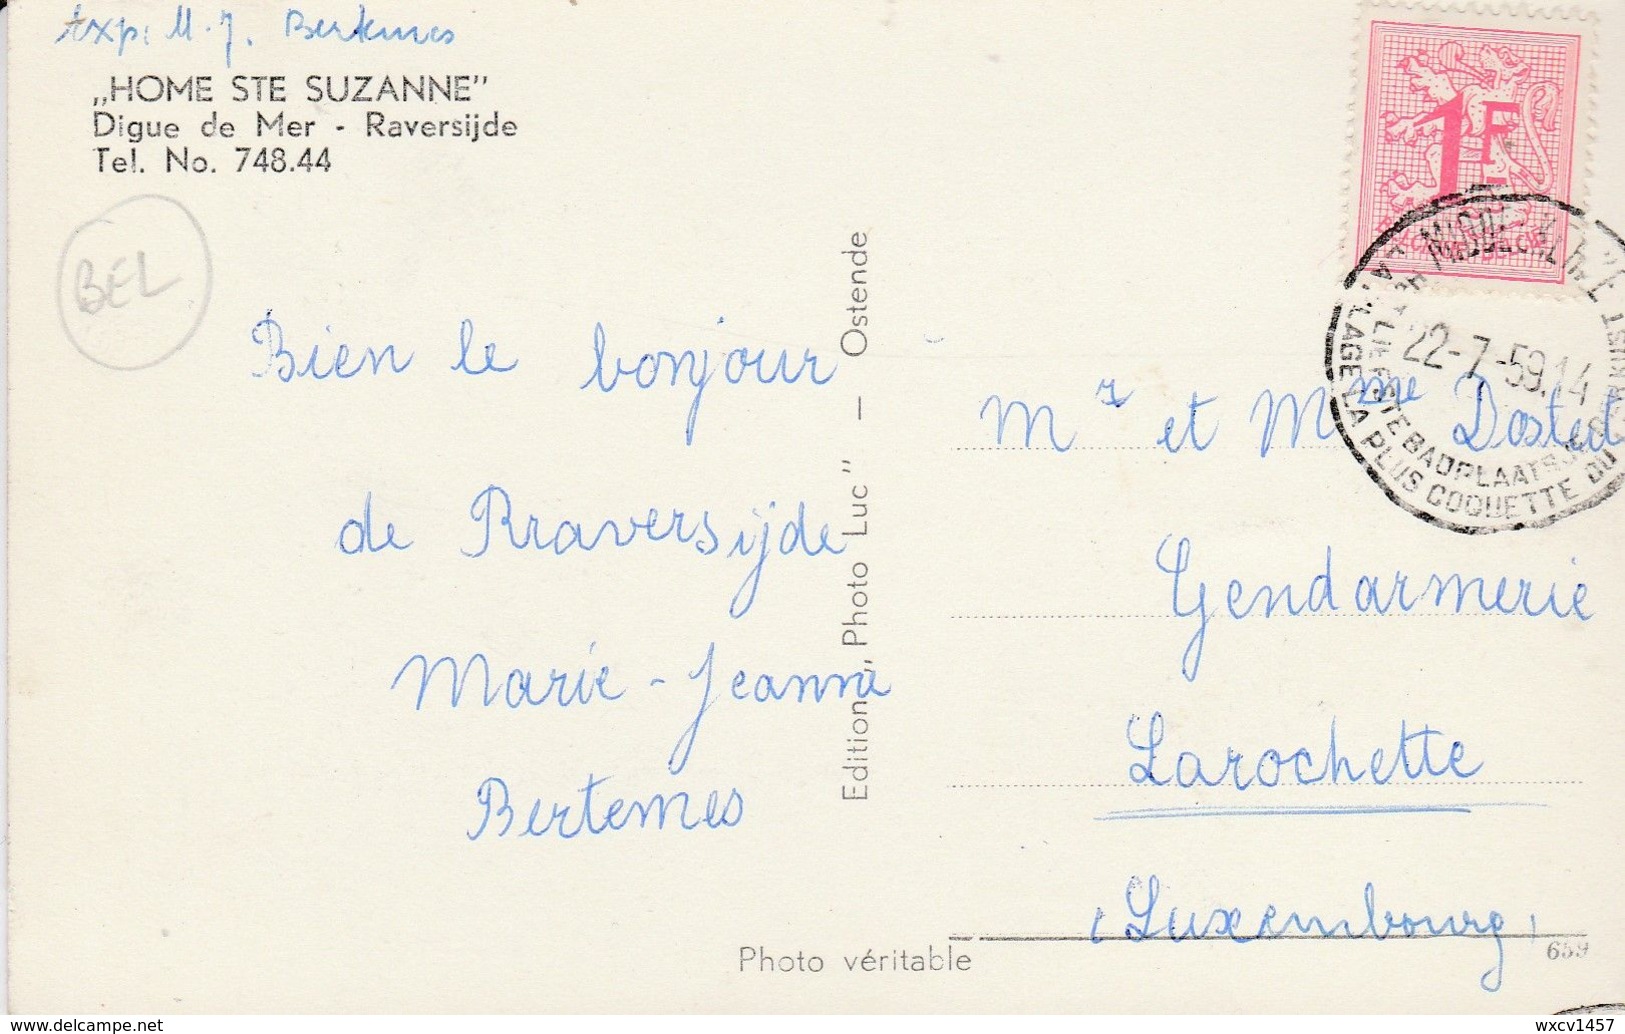 Exp: M. J. Bertemes
„HOME STE SUZANNE”
Digue de Mer - Raversijde
Tel. No. 748.44
BEL
Bien le bonjour
de Rraversijde
Marie-Jeanne
Bertemes
Editions, Photo Luc” — Ostende
Photo véritable
1F
BELGIE
MIDDELKERKE
22-7-59.14
BADPLAATS
PLAGE LA PLUS COQUETTE DU
Mr et Mme Dostert
Gendarmerie
Larochette
(Luxembourg)
659
delcampe.net
wxcv1457